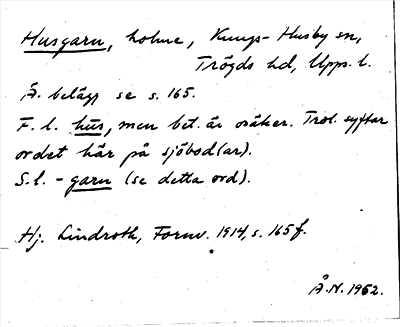 Husgarn, holme, Kungs-Husby sn,
Trögds hd, Upps. l.
Ä. belägg se s. 165.
F. l. hus, men bet. är osäker. Trol. syftar
ordet här på sjöbod(ar).
S. l. - garn (se detta ord).
Hj. Lindroth, Fornv. 1914, s. 165 f.
Å.N. 1962.